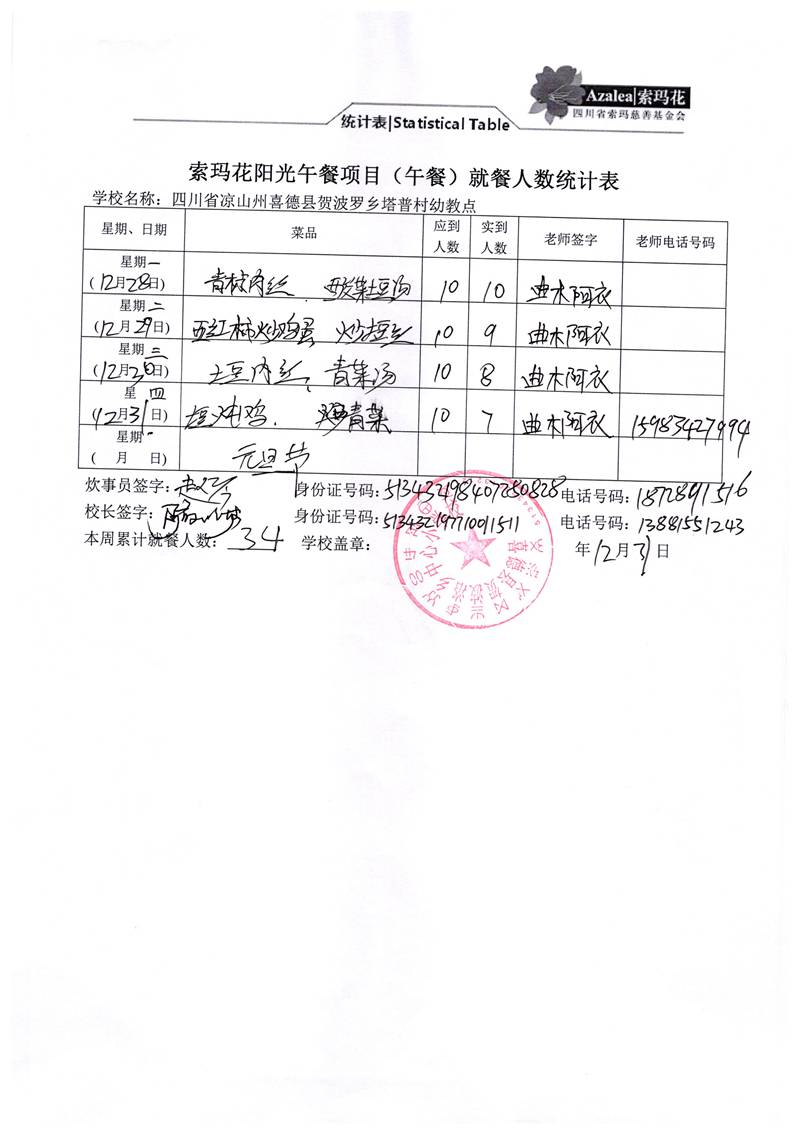 Azalea|索玛花
四川省索玛慈善基金会
统计表|Statistical Table
索玛花阳光午餐项目（午餐）就餐人数统计表
学校名称：四川省凉山州喜德县贺波罗乡塔普村幼教点
星期、日期 菜品 应到人数 实到人数 老师签字 老师电话号码
星期一 (12月28日) 青椒肉丝、 土豆汤 10 10 曲木阿衣
星期二 (12月29日) 西红柿炒鸡蛋 10 9 曲木阿衣
星期三 (12月30日) 土豆肉丝、青菜汤 10 8 曲木阿衣
星 四 (12月31日) 炖鸡、 青菜 10 7 曲木阿衣 15983427994
星期 ( 月 日) 元旦节
炊事员签字： 身份证号码：513432198407280828 电话号码：18728911516
校长签字： 身份证号码：513432197710011511 电话号码：13881551243
本周累计就餐人数：34 学校盖章： 年12月31日